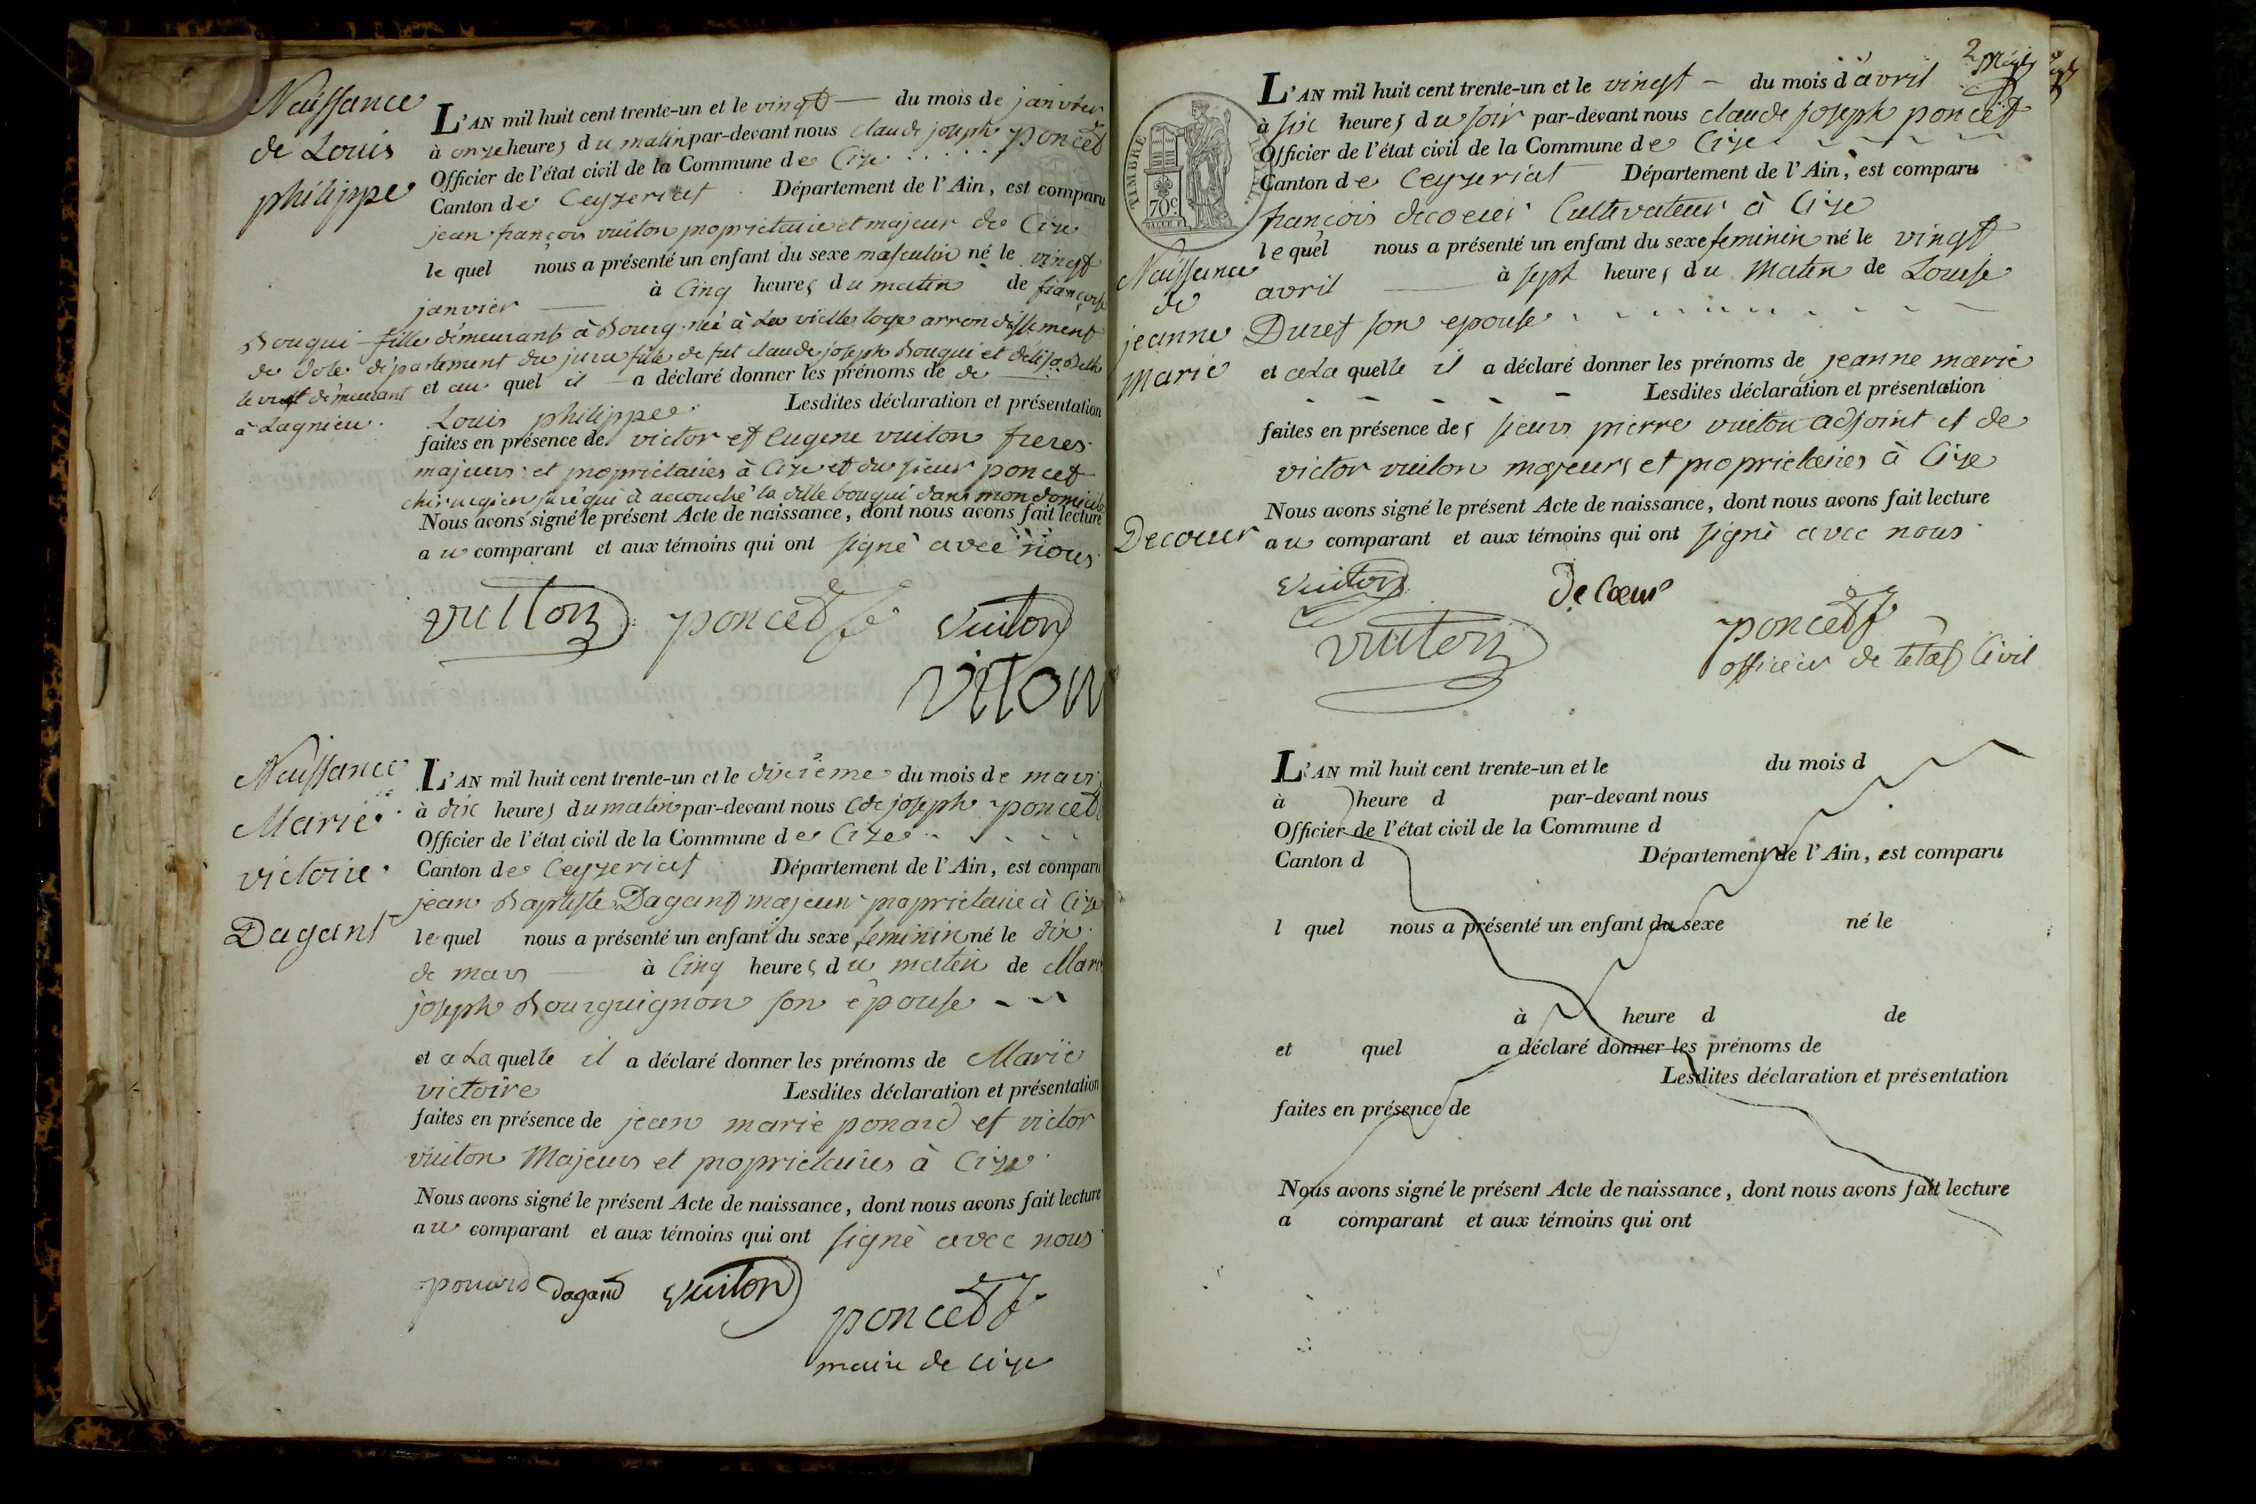 Naissance
de Louis
philippe
L'AN mil huit cent trente-un et le vingt du mois de janvier
à onze heures du matin par-devant nous claude joseph poncet
Officier de l'état civil de la Commune de Cize
Canton de Ceyzeriat Département de l'Ain, est comparu
jean françois vuiton proprietaire et majeur de Cize
lequel nous a présenté un enfant du sexe masculin né le vingt
janvier à Cinq heures du matin de françoise
Bouqui fille demeurant à Bourg née à La vielle loge arrondissement
de dole département du jura fille de fut claude joseph Bouqui et
demeurant et au quel il a déclaré donner les prénoms de de
à Lagnieu.
Louis philippe Lesdites déclaration et présentation
faites en présence de victor et Eugene vuiton freres
majeurs et proprietaires à Cize et du sieur poncet
chirurgien juré qui à accouché la ditte bouqui dans mon domicile
Nous avons signé le présent Acte de naissance, dont nous avons fait lecture
au comparant et aux témoins qui ont signé avec nous
vuiton poncet vuiton
viton
Naissance
Marie
victoire
Dagant
L'AN mil huit cent trente-un et le dixième du mois de mars
à dix heures du matin par-devant nous Cde joseph poncet
Officier de l'état civil de la Commune de Cize
Canton de Ceyzeriat Département de l'Ain, est comparu
jean Baptiste Dagant majeur proprietaire à Cize
lequel nous a présenté un enfant du sexe feminin né le dix
de mars à Cinq heures du matin de Marie
joseph Bourguignon son épouse
et a La quelle il a déclaré donner les prénoms de Marie
victoire Lesdites déclaration et présentation
faites en présence de jean marie ponard et victor
vuiton Majeurs et proprietaires à Cize
Nous avons signé le présent Acte de naissance, dont nous avons fait lecture
au comparant et aux témoins qui ont signé avec nous
ponard Dagand vuiton
poncet
maire de Cize
2
TIMBRE ROYAL
70c
L'AN mil huit cent trente-un et le vingt du mois d'avril
à six heures du soir par-devant nous claude joseph poncet
Officier de l'état civil de la Commune de Cize
Canton de Ceyzeriat Département de l'Ain, est comparu
françois decoeur Cultivateur à Cize
lequel nous a présenté un enfant du sexe feminin né le vingt
avril à sept heures du Matin de Louise
Duret son epouse
Naissance
de
jeanne
Marie
Decoeur
et a La quelle il a déclaré donner les prénoms de jeanne marie
Lesdites déclaration et présentation
faites en présence des sieurs pierre vuiton adjoint et de
victor vuiton majeurs et proprietaires à Cize
Nous avons signé le présent Acte de naissance, dont nous avons fait lecture
au comparant et aux témoins qui ont signé avec nous
vuiton De Coeur
vuiton poncet
officier de letat Civil
L'AN mil huit cent trente-un et le du mois d
à heure d par-devant nous
Officier de l'état civil de la Commune d
Canton d Département de l'Ain, est comparu
l quel nous a présenté un enfant du sexe né le
à heure d de
et quel a déclaré donner les prénoms de
Lesdites déclaration et présentation
faites en présence de
Nous avons signé le présent Acte de naissance, dont nous avons fait lecture
a comparant et aux témoins qui ont